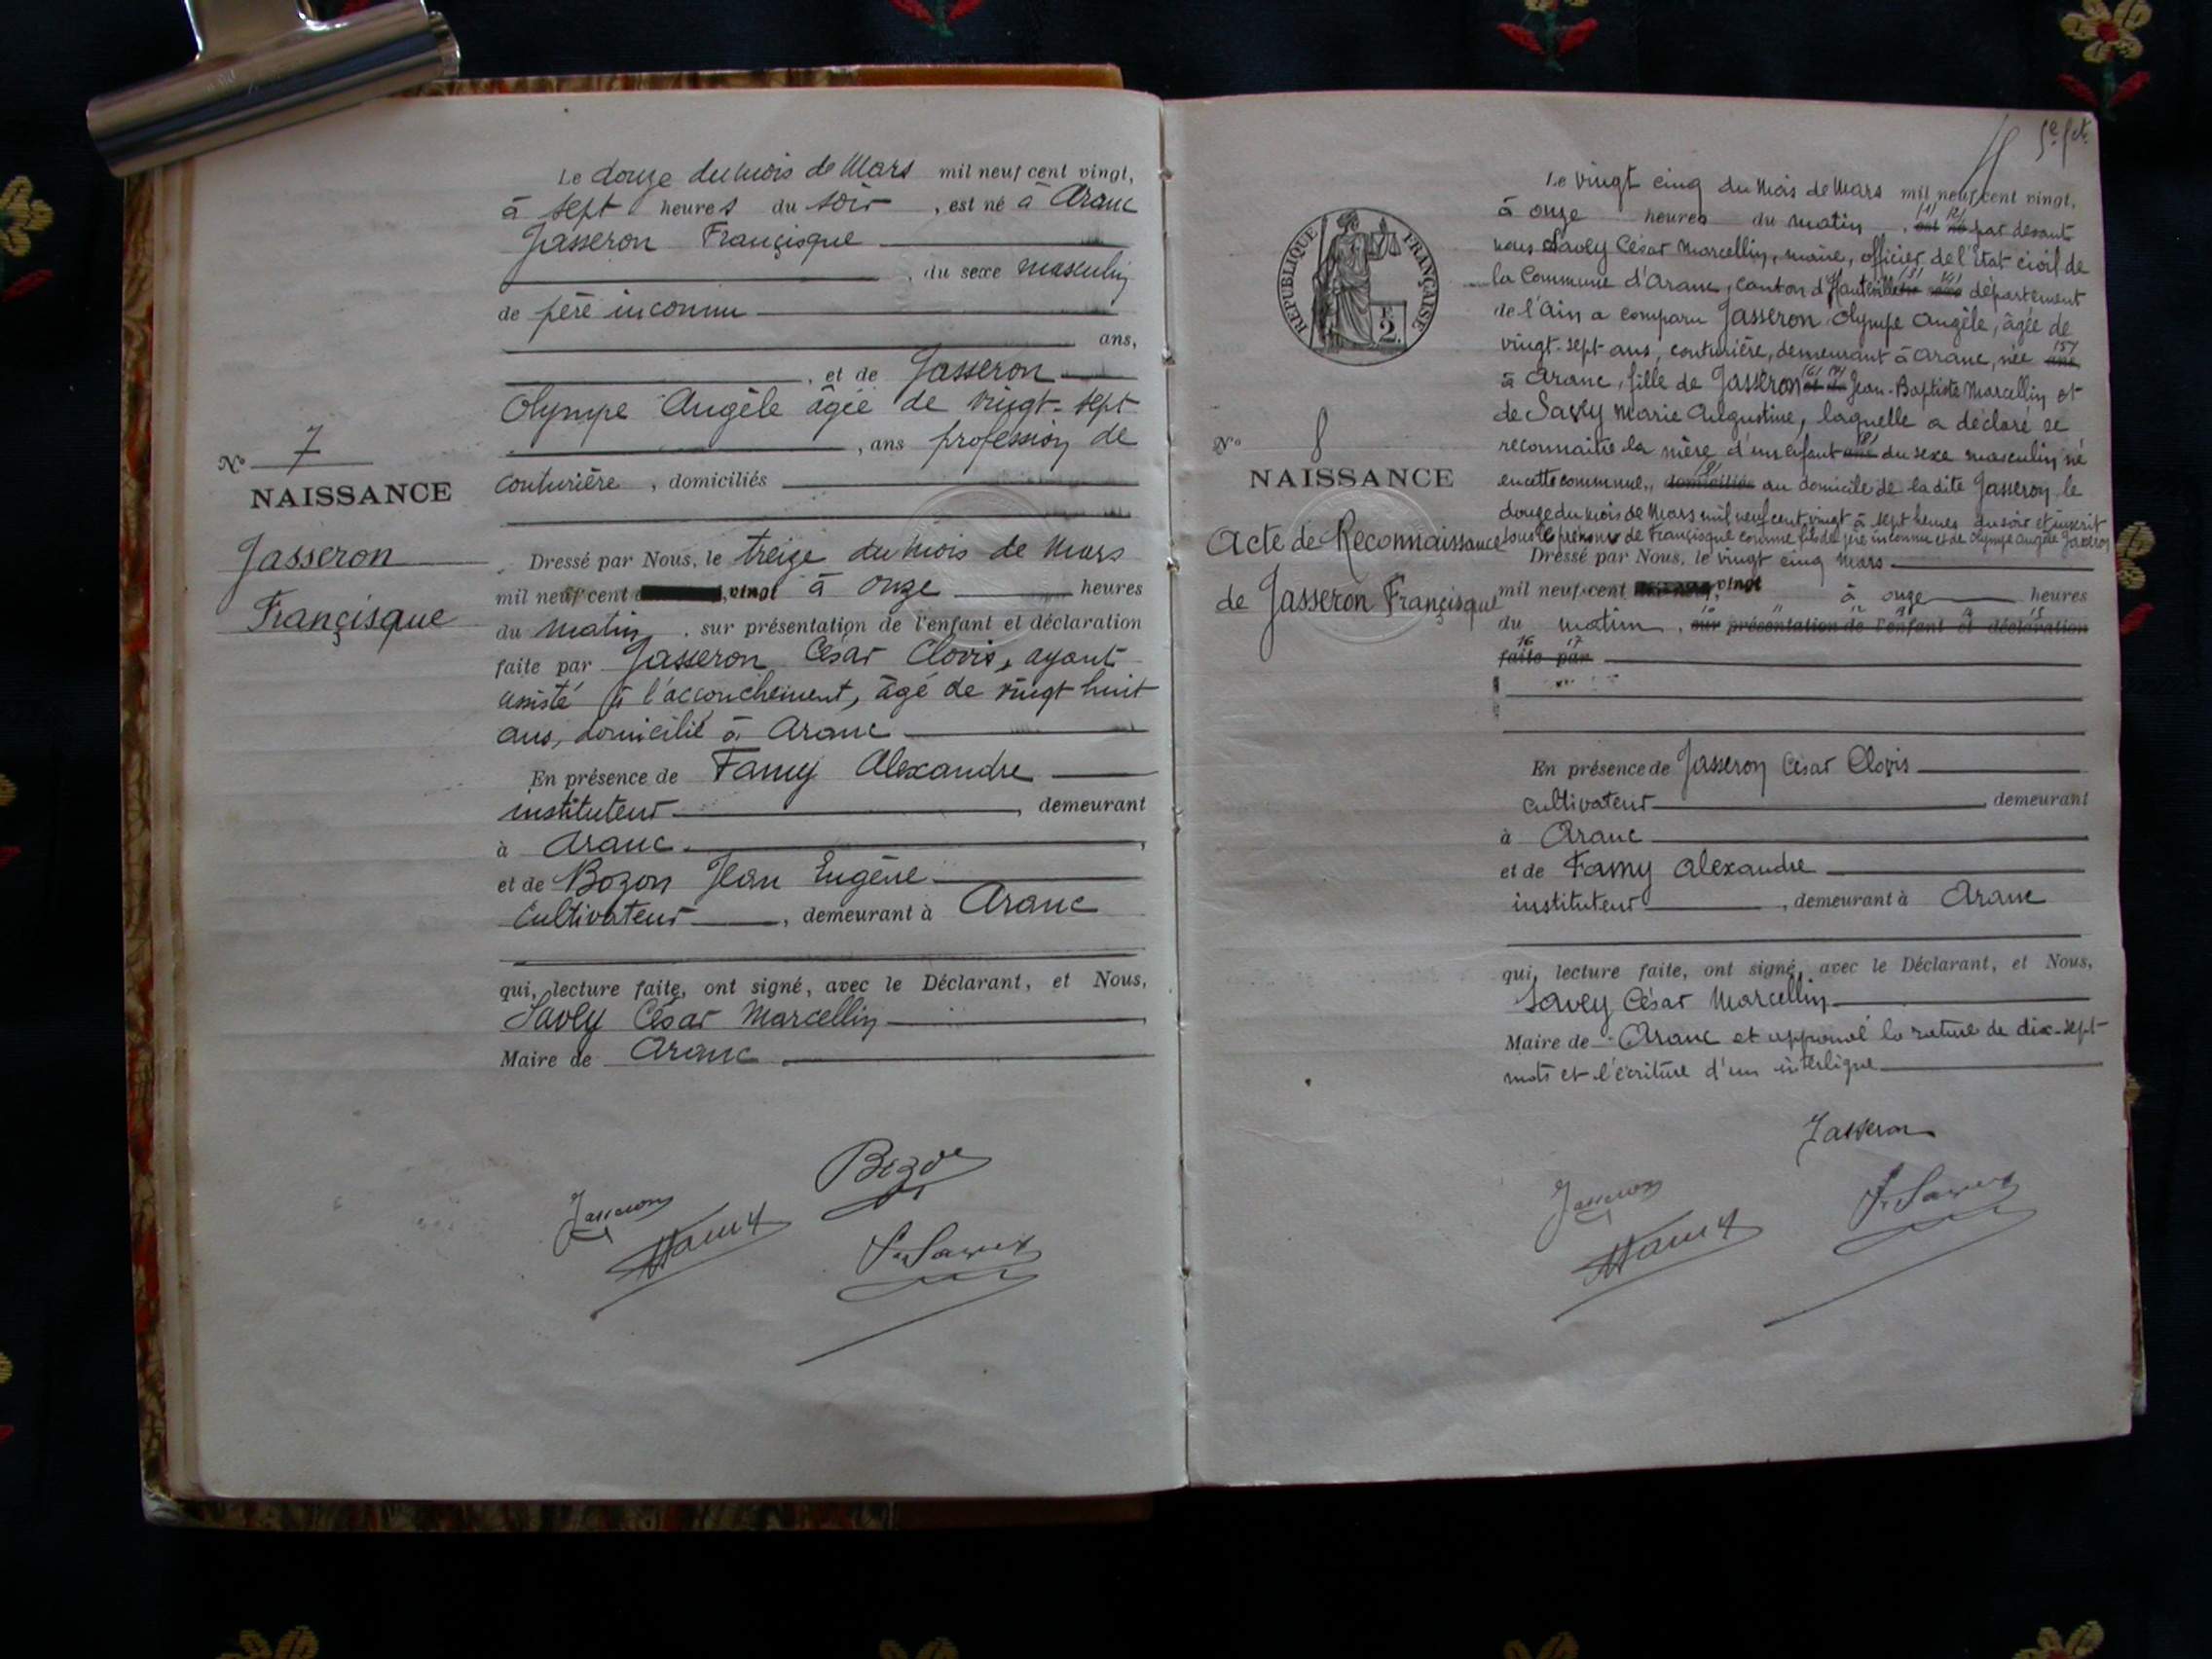 Le douze du mois de Mars mil neuf cent vingt,
à sept heures du soir, est né à Aranc
Jasseron Françisque
, du sexe masculin
de père inconnu
ans,
, et de Jasseron
Olympe Angèle âgée de vingt-sept
, ans profession de
couturière, domiciliés
N° 7
NAISSANCE
Jasseron
Françisque
Dressé par Nous, le treize du mois de Mars
mil neuf cent vingt à onze heures
du matin, sur présentation de l'enfant et déclaration
faite par Jasseron César Clovis, ayant
assisté à l'accouchement, âgé de vingt huit
ans, domicilié à Aranc
En présence de Famy Alexandre
instituteur, demeurant
à Aranc,
et de Bozon Jean Eugène
cultivateur, demeurant à Aranc
qui, lecture faite, ont signé, avec le Déclarant, et Nous,
Savey César Marcellin
Maire de Aranc
Bozon
Jasseron
Famy
Savey
5e fet.
REPUBLIQUE FRANÇAISE
2
N° 8
NAISSANCE
Acte de Reconnaissance
de Jasseron Françisque
Le vingt cinq du mois de Mars mil neuf cent vingt,
à onze heures du matin, (1) (2) est né par devant
nous Savey César Marcellin, maire, officier de l'état civil de
la Commune d'Aranc, canton d'Hauteville (3) (4) département
de l'Ain a comparu Jasseron Olympe Angèle, âgée de
vingt-sept ans, couturière, demeurant à Aranc, née (5) ans,
à Aranc, fille de Jasseron (6) (7) et de Jean-Baptiste Marcellin et
de Savey Marie Augustine, laquelle a déclaré se
reconnaitre la mère d'un enfant (8) ans du sexe masculin né
en cette commune, (9) domiciliés au domicile de la dite Jasseron, le
douze du mois de Mars mil neuf cent vingt à sept heures du soir et inscrit
sous le prénom de Françisque comme fils de père inconnu et de Olympe Angèle Jasseron
Dressé par Nous, le vingt cinq Mars
mil neuf cent vingt à onze heures
du matin, sur présentation de l'enfant et déclaration
16 17
faite par
En présence de Jasseron César Clovis
cultivateur, demeurant
à Aranc
et de Famy Alexandre
instituteur, demeurant à Aranc
qui, lecture faite, ont signé, avec le Déclarant, et Nous,
Savey César Marcellin
Maire de Aranc et approuvé la rature de dix-sept
mots et l'écriture d'un interligne
Jasseron
Jasseron
Famy
Savey